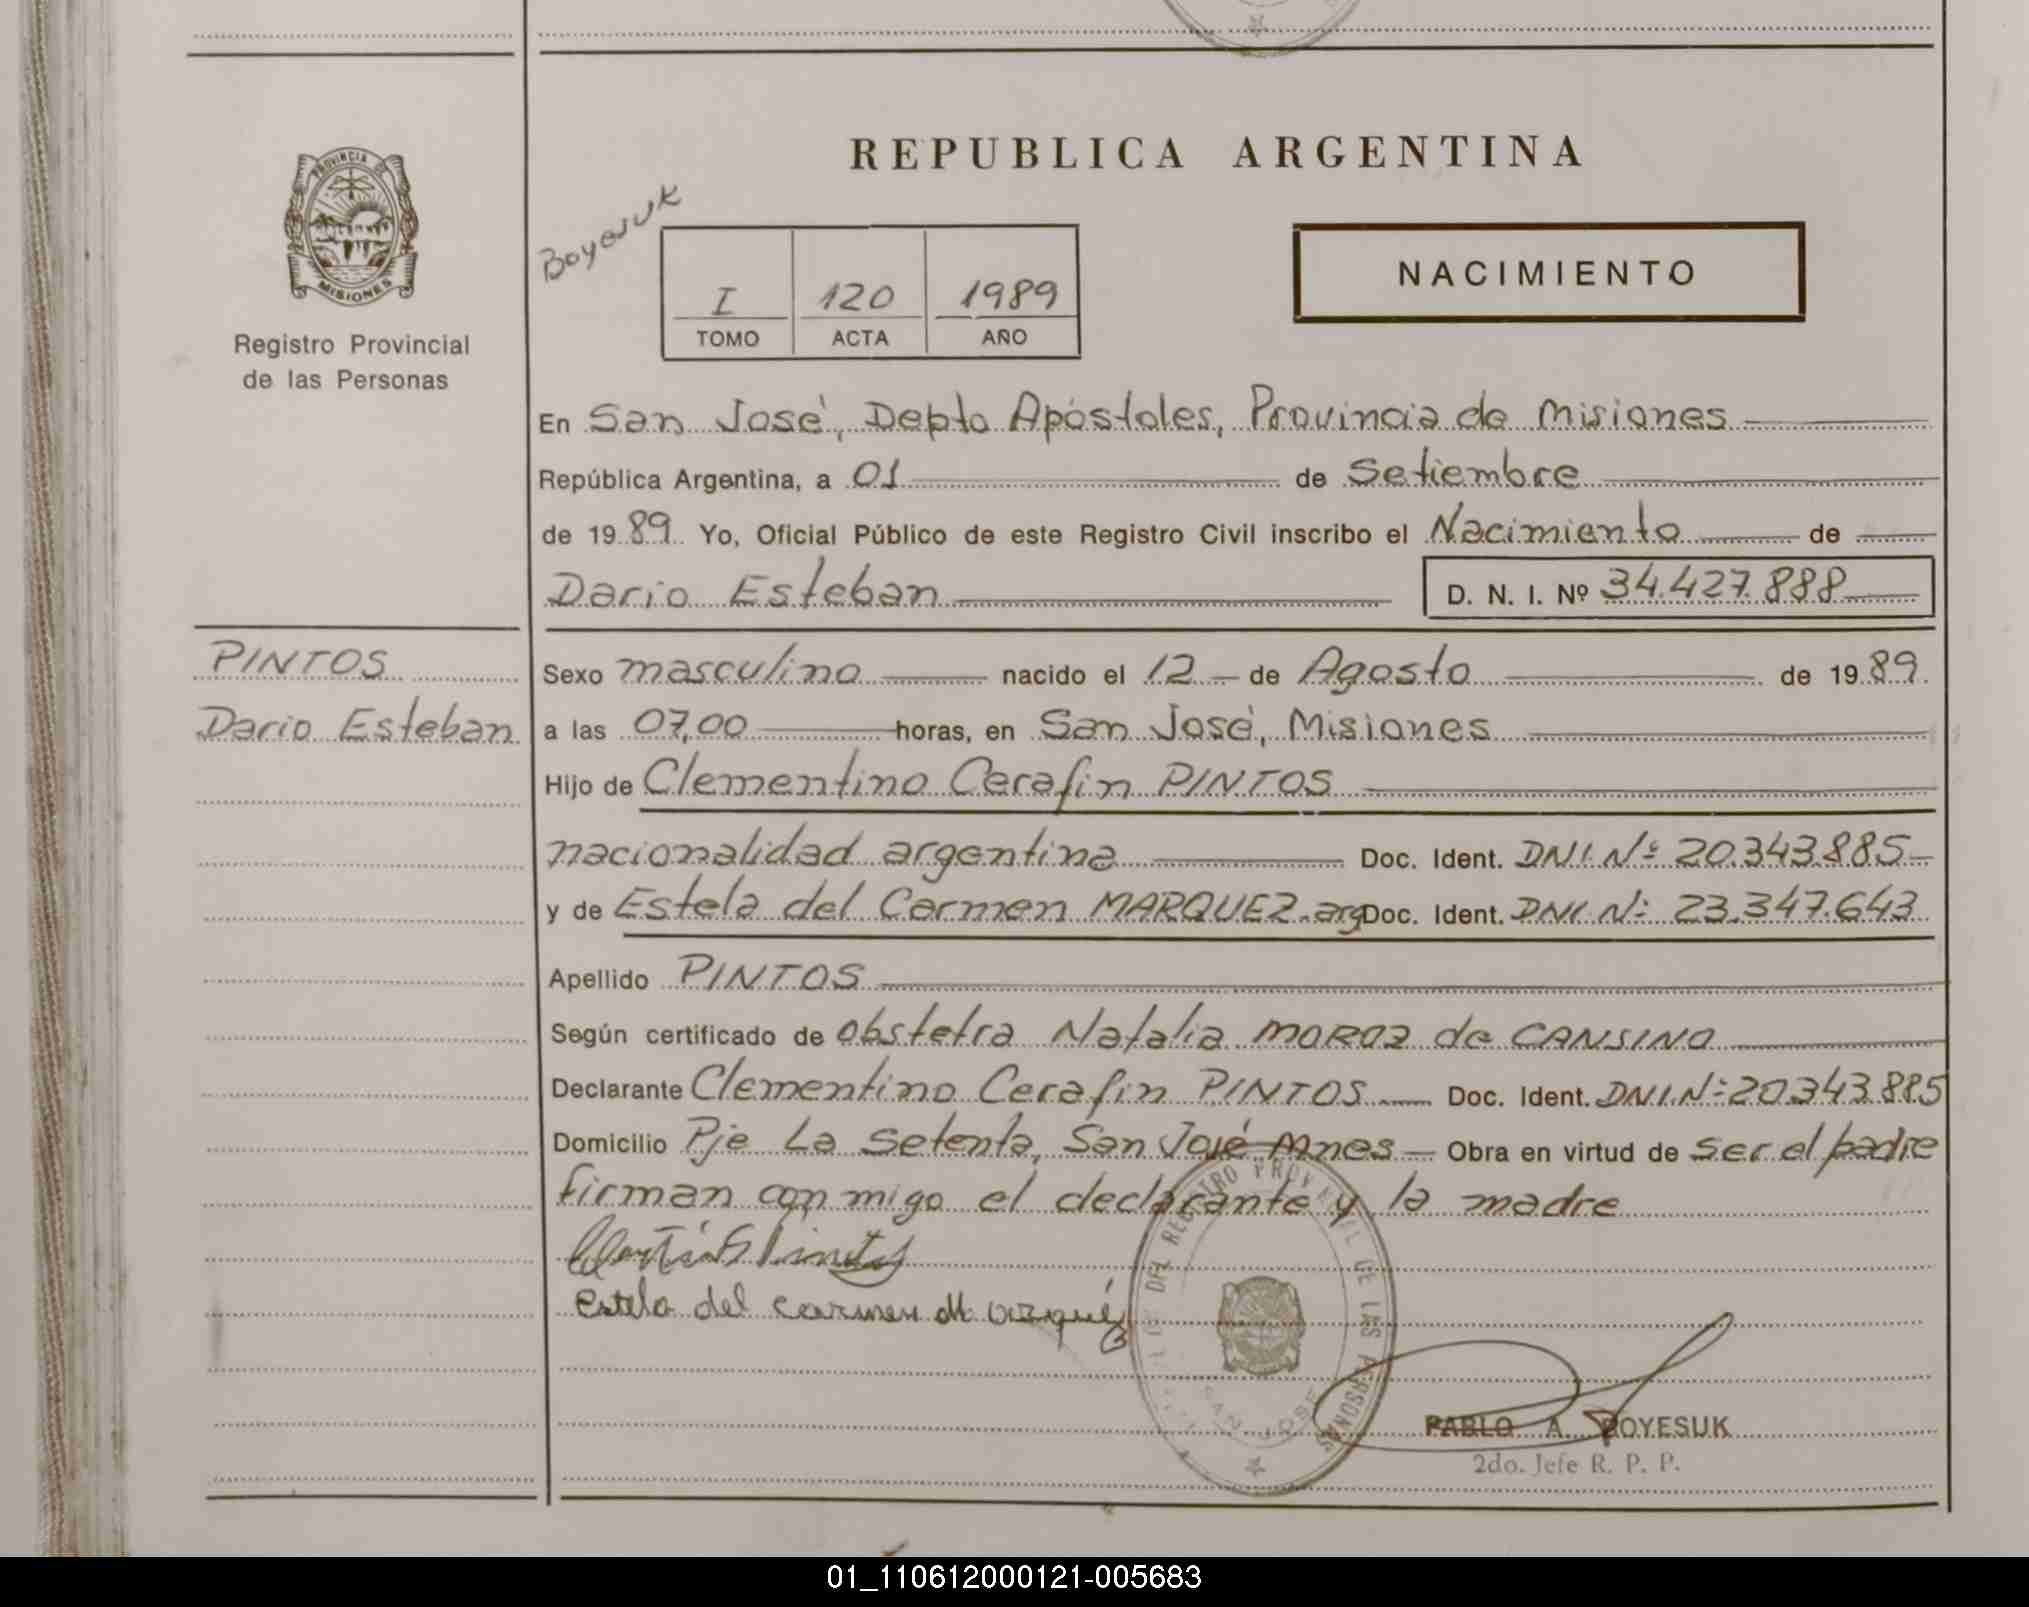 PROVINCIA DE
MISIONES
Registro Provincial
de las Personas
REPUBLICA ARGENTINA
Boyesuk
I 120 1989
TOMO ACTA AÑO
NACIMIENTO
En San José, Depto Apóstoles, Provincia de Misiones
República Argentina, a 01 de Setiembre
de 1989 Yo, Oficial Público de este Registro Civil inscribo el Nacimiento de
Dario Esteban D. N. I. Nº 34.427.888
PINTOS
Dario Esteban
Sexo masculino nacido el 12 de Agosto de 1989
a las 07,00 horas, en San José, Misiones
Hijo de Clementino Cerafin PINTOS
nacionalidad argentina Doc. Ident. DNI. Nº 20.343.885
y de Estela del Carmen MARQUEZ-arg Doc. Ident. DNI. Nº 23.347.643
Apellido PINTOS
Según certificado de obstetra Natalia MOROZ de CANSINO
Declarante Clementino Cerafin PINTOS Doc. Ident. DNI.Nº 20.343.885
Domicilio Pje La Setenta, San José-Mnes Obra en virtud de ser el padre
firman con migo el declarante y la madre
Estela del carmen Marquéz
DEL REGISTRO PROVINCIAL DE LAS PERSONAS
SAN JOSE
PABLO A. BOYESUK
2do. Jefe R. P. P.
01_110612000121-005683